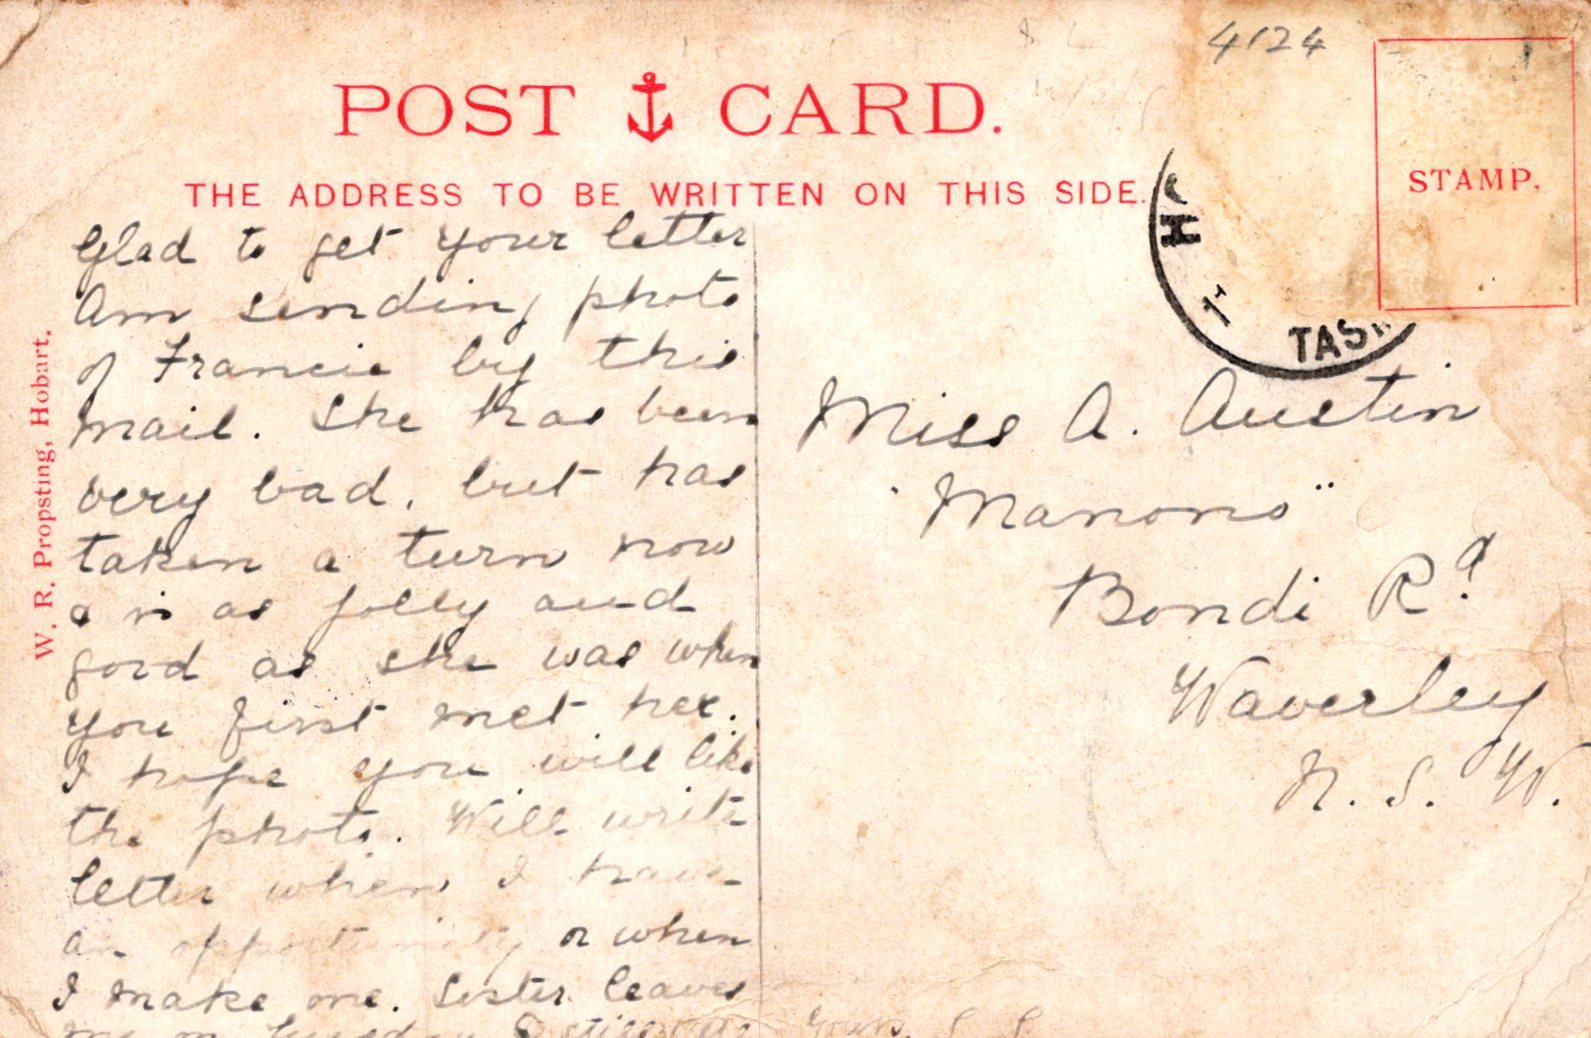 4124
POST CARD.
THE ADDRESS TO BE WRITTEN ON THIS SIDE.
STAMP.
TAS
W. R. Propsting, Hobart.
Glad to get your letter
Am sending photo
of Francie by this
mail. She has been
very bad, but has
taken a turn now
& is as jolly and
good as she was when
you first met her.
I hope you will like
the photo. Will write
letter when I have
an opportunity or when
I make one. Sister leaves
me on Tuesday
Miss A. Austin
"Manono"
Bondi Rd
Waverley
N. S. W.